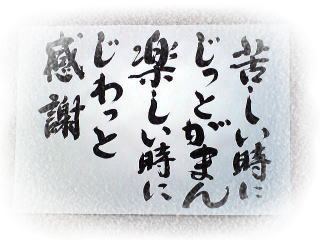 苦しい時に
じっとがまん
楽しい時に
じわっと
感謝